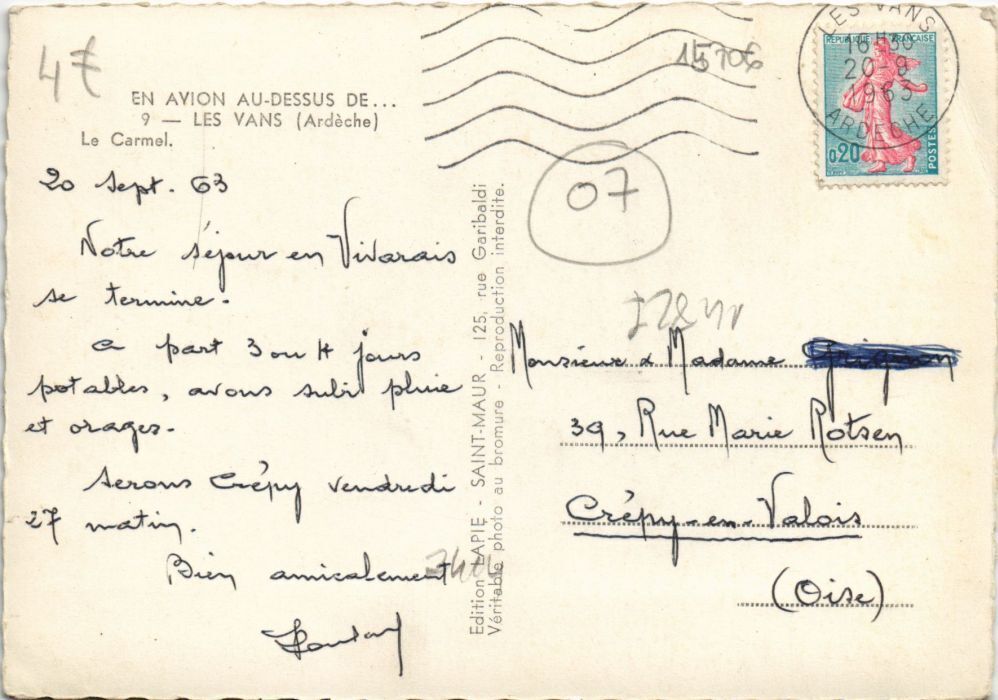 4€
EN AVION AU-DESSUS DE...
9 — LES VANS (Ardèche)
Le Carmel.
20 sept. 63
Notre séjour en Vivarais
se termine.
A part 3 ou 4 jours
potables, avons subi pluie
et orages.
Serons Crépy vendredi
27 matin.
Bien amicalement
Edition LAPIE - SAINT-MAUR - 125, rue Garibaldi
Véritable photo au bromure - Reproduction interdite.
07
LES VANS
16H30
20-9
1963
ARDECHE
REPUBLIQUE FRANÇAISE
0,20
POSTES
Monsieur & Madame
39, Rue Marie Rotsen
Crépy-en-Valois
(Oise)